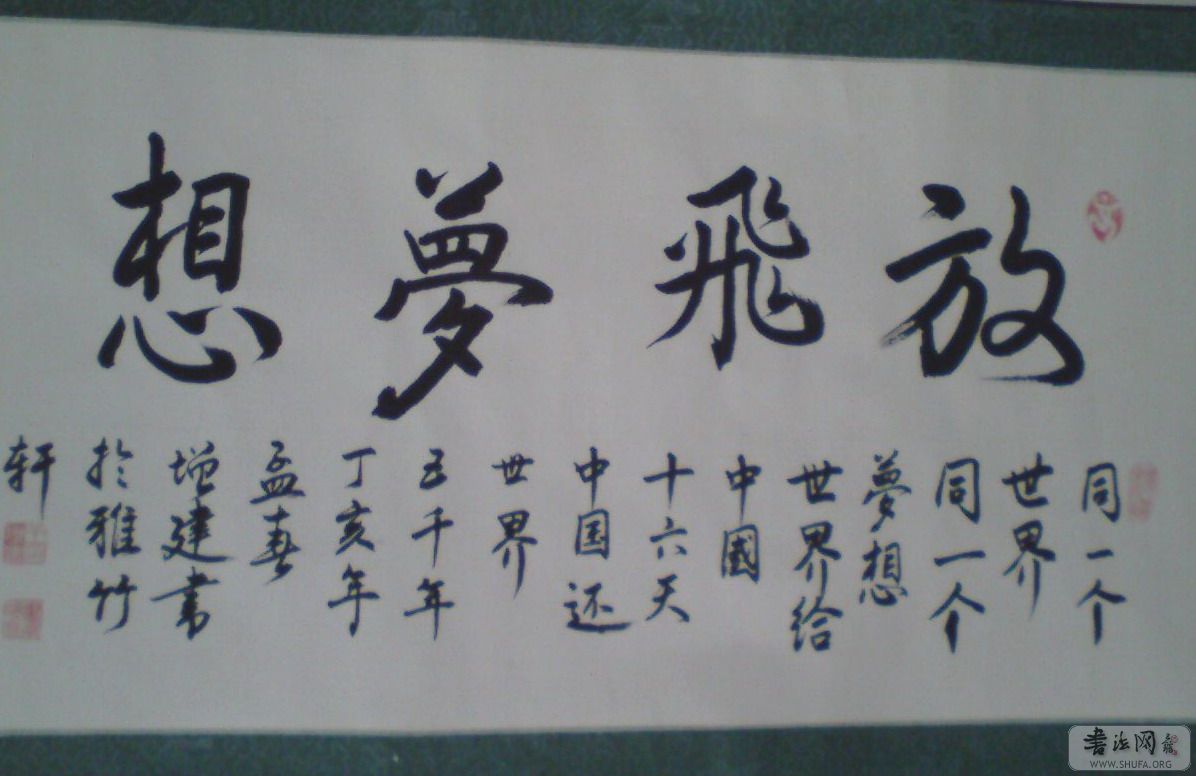 放飛夢想
同一个
世界
同一个
夢想
世界给
中國
十六天
中国还
世界
五千年
丁亥年
孟春
增建书
於雅竹
轩
书法网
WWW.SHUFA.ORG